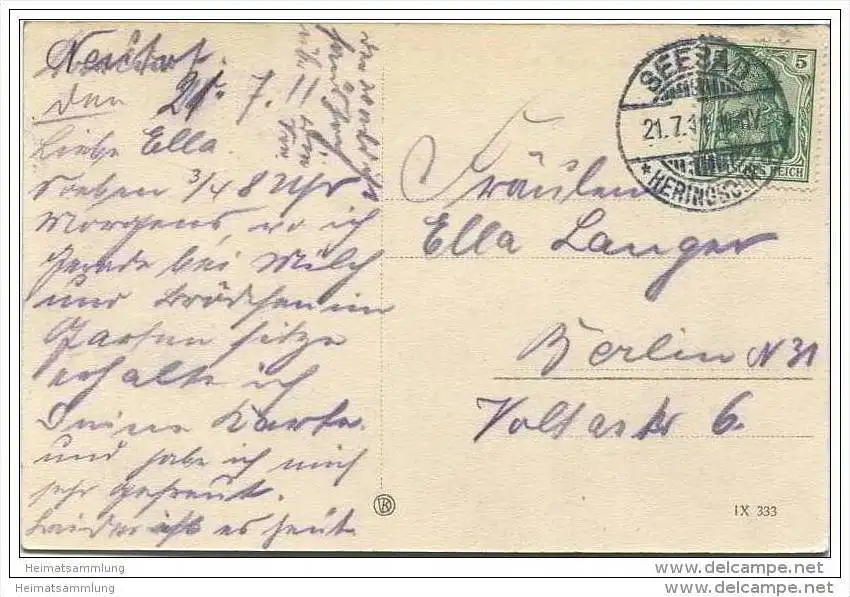 den 21. 7. 11
Liebe Ella.
Soeben 3/4 8 Uhr
Morgens, wo ich
gerade bei Milch
und Brödchen im
Garten sitze
erhalte ich
Deine Karte
und habe ich mich
sehr gefreut.
Leider ist es heut
Fräulein
Ella Langer
Berlin N 31
Voltastr 6.
SEEBAD
21.7.1
* HERINGSD
5
REICH
IX 333
Heimatsammlung
Heimatsammlung
www.delcampe.net
www.delcampe.net